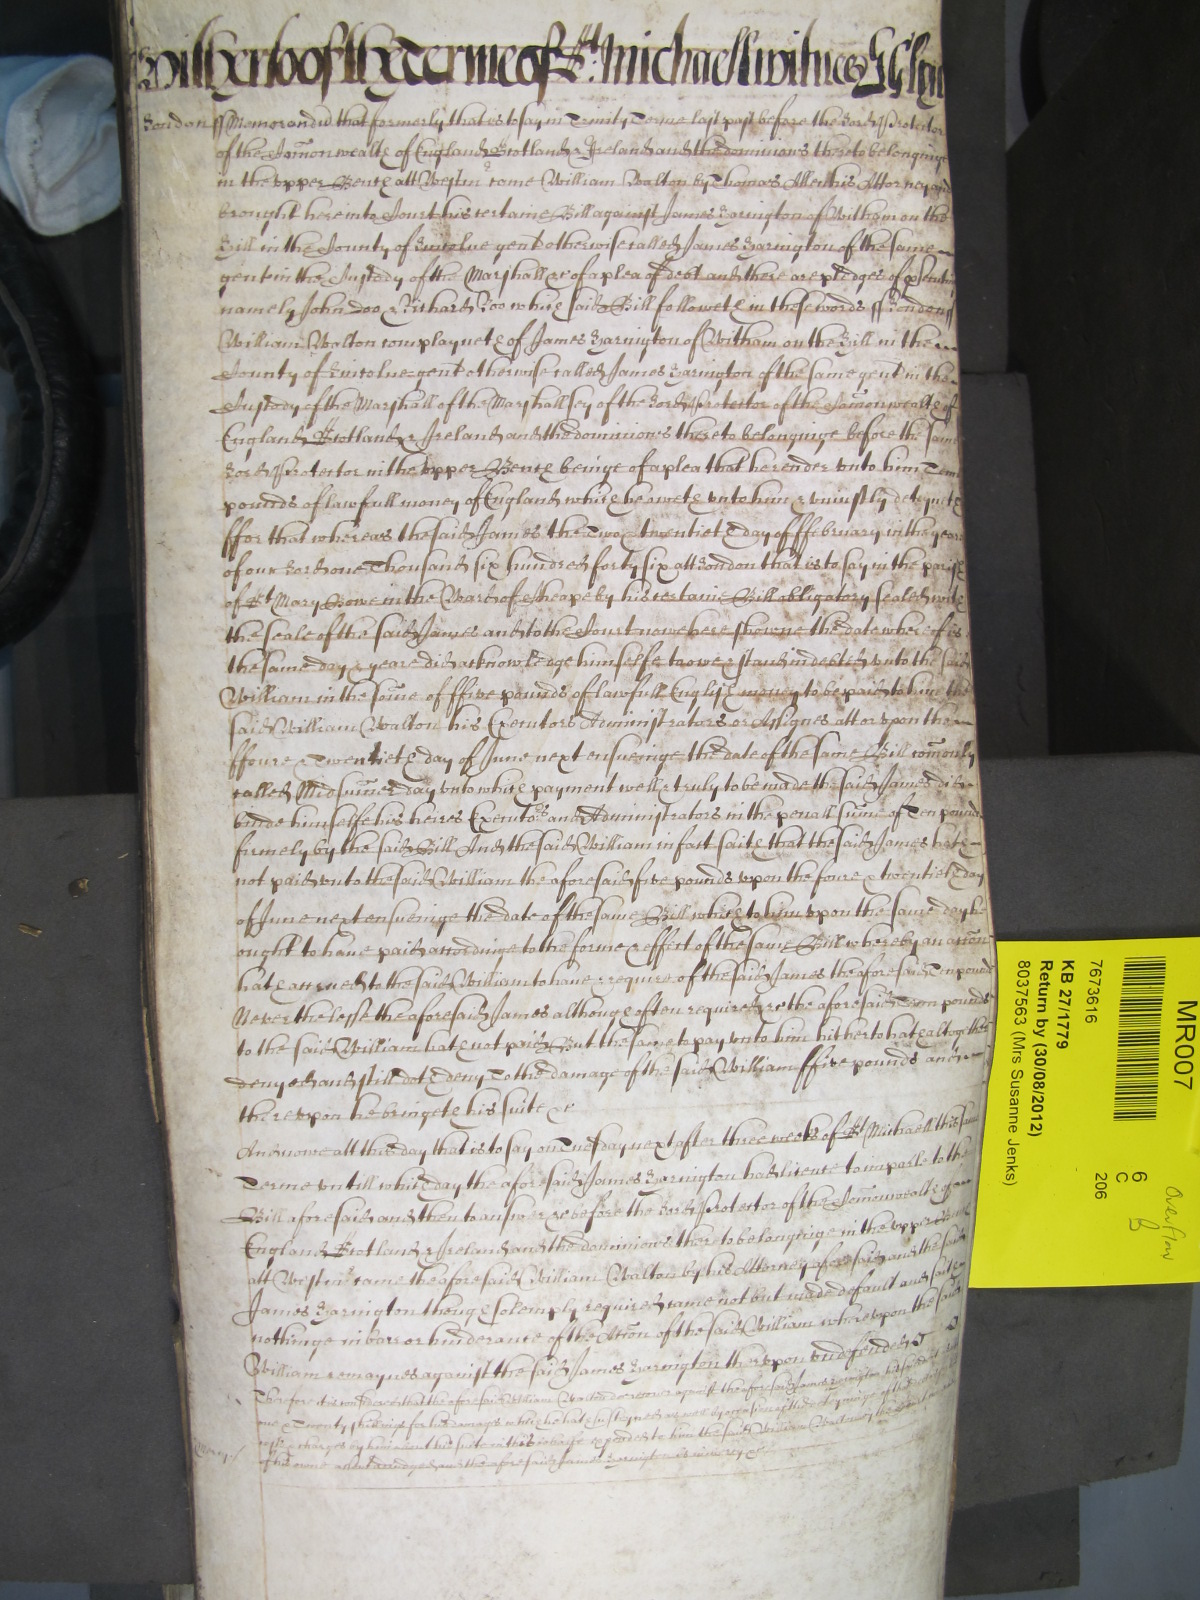 Hitherto of the Terme of St: Michaell witnes
London ss Memorand that formerly that is to say in Trinity Terme last past before the Lord Protector
of the Comon wealth of England Scotland & Ireland and the dominions thereto belonginge
in the upper Bench att Westmr came William Walton by Thomas Allen his Attorney and
brought here into Court his certaine Bill against James Yarington of Witham on the
Hill in the County of Lincolne gent otherwise called James Yarington of the same
gent in the Custody of the Marshall &c of a plea of debt and there are pledges of psentinge
namely John Doo & Richard Roo which said Bill followeth in these words ss London ss
William Walton complayneth of James Yarington of Witham on the Hill in the
County of Lincolne gent otherwise called James Yarington of the same gent in the
Custody of the Marshall of the Marshallsey of the Lord Protector of the Comonwealth of
England Scotland & Ireland and the dominions thereto belonginge before the same
Lord Protector in the upper Bench beinge of a plea that he render unto him Tenn
pounds of lawfull money of England which he oweth unto him & uniustly detayneth
ffor that whereas the said James the Two & twentieth Day of ffebruary in the yeare
of our Lord one Thousand six hundred forty six att London that is to say in the parish
of St Mary Bowe in the Ward of Cheape by his certaine Bill obligatory sealed with
the seale of the said James and to the Court nowe here showne the date whereof is
the same day & yeare did acknowledge himselfe to owe & stand indebted unto the said
William in the some of ffive pounds of lawfull English money to be paid to him the
said William Walton his Executors Administrators or Assignes att or upon the
ffoure & Twentieth day of June next ensueinge the date of the same Bill comonly
called Midsumer day unto which payment well & truly to be made the said James did
binde himselfe his heires Executors and Administrators in the penall sume of Ten pounds
firmely by the said Bill And the said William in fact saith that the said James hath
not paid unto the said William the aforesaid five pounds upon the foure & twentieth day
of June next ensueinge the date of the same Bill which to him upon the same day he
ought to have paid accordinge to the forme & effect of the same Bill whereby an accon
hath accrued to the said William to have & require of the said James the aforesaid Tenn pounds
Neverthelesse the aforesaid James although often required &c the aforesaid Tenn pounds
to the said William hath not paid But the same to pay unto him hitherto hath altogether
denyed and still doth deny To the damage of the said William ffive pounds and
thereupon he bringeth his suite &c
And nowe att this day that is to say on Tuesday next after three weeks of St Michaell this same
Terme untill which day the aforesaid James Yarington had licence to imparle to the
Bill aforesaid and then to answer &c before the Lord Protector of the Comonwealth of
England Scotland & Ireland and the dominions thereto belonginge in the upper Bench
att Westmr came the aforesaid William Walton by his Attorney aforesaid and the said
James Yarington though solemply required came not but made default and saith
nothinge in barr or hinderance of the Accon of the said William whereupon the said
William remaynes against the said James Yarington thereupon undefended
Therefore it is considered that the aforesaid William Walton doe recover against the aforesaid James Yarington his said debt
one & Twenty shillings for his damages which he hath susteyned as well by occasion of the deteyninge of that debt
costs & charges by him about his suite in this behalfe expended to him the said William Walton
of his owne assent adiudged and the aforesaid James Yarington in mercy &c
mercy
MR007
7673616
KB 27/1779
Return by (30/08/2012)
8037563 (Mrs Susanne Jenks)
6
C
206
Overflow
B